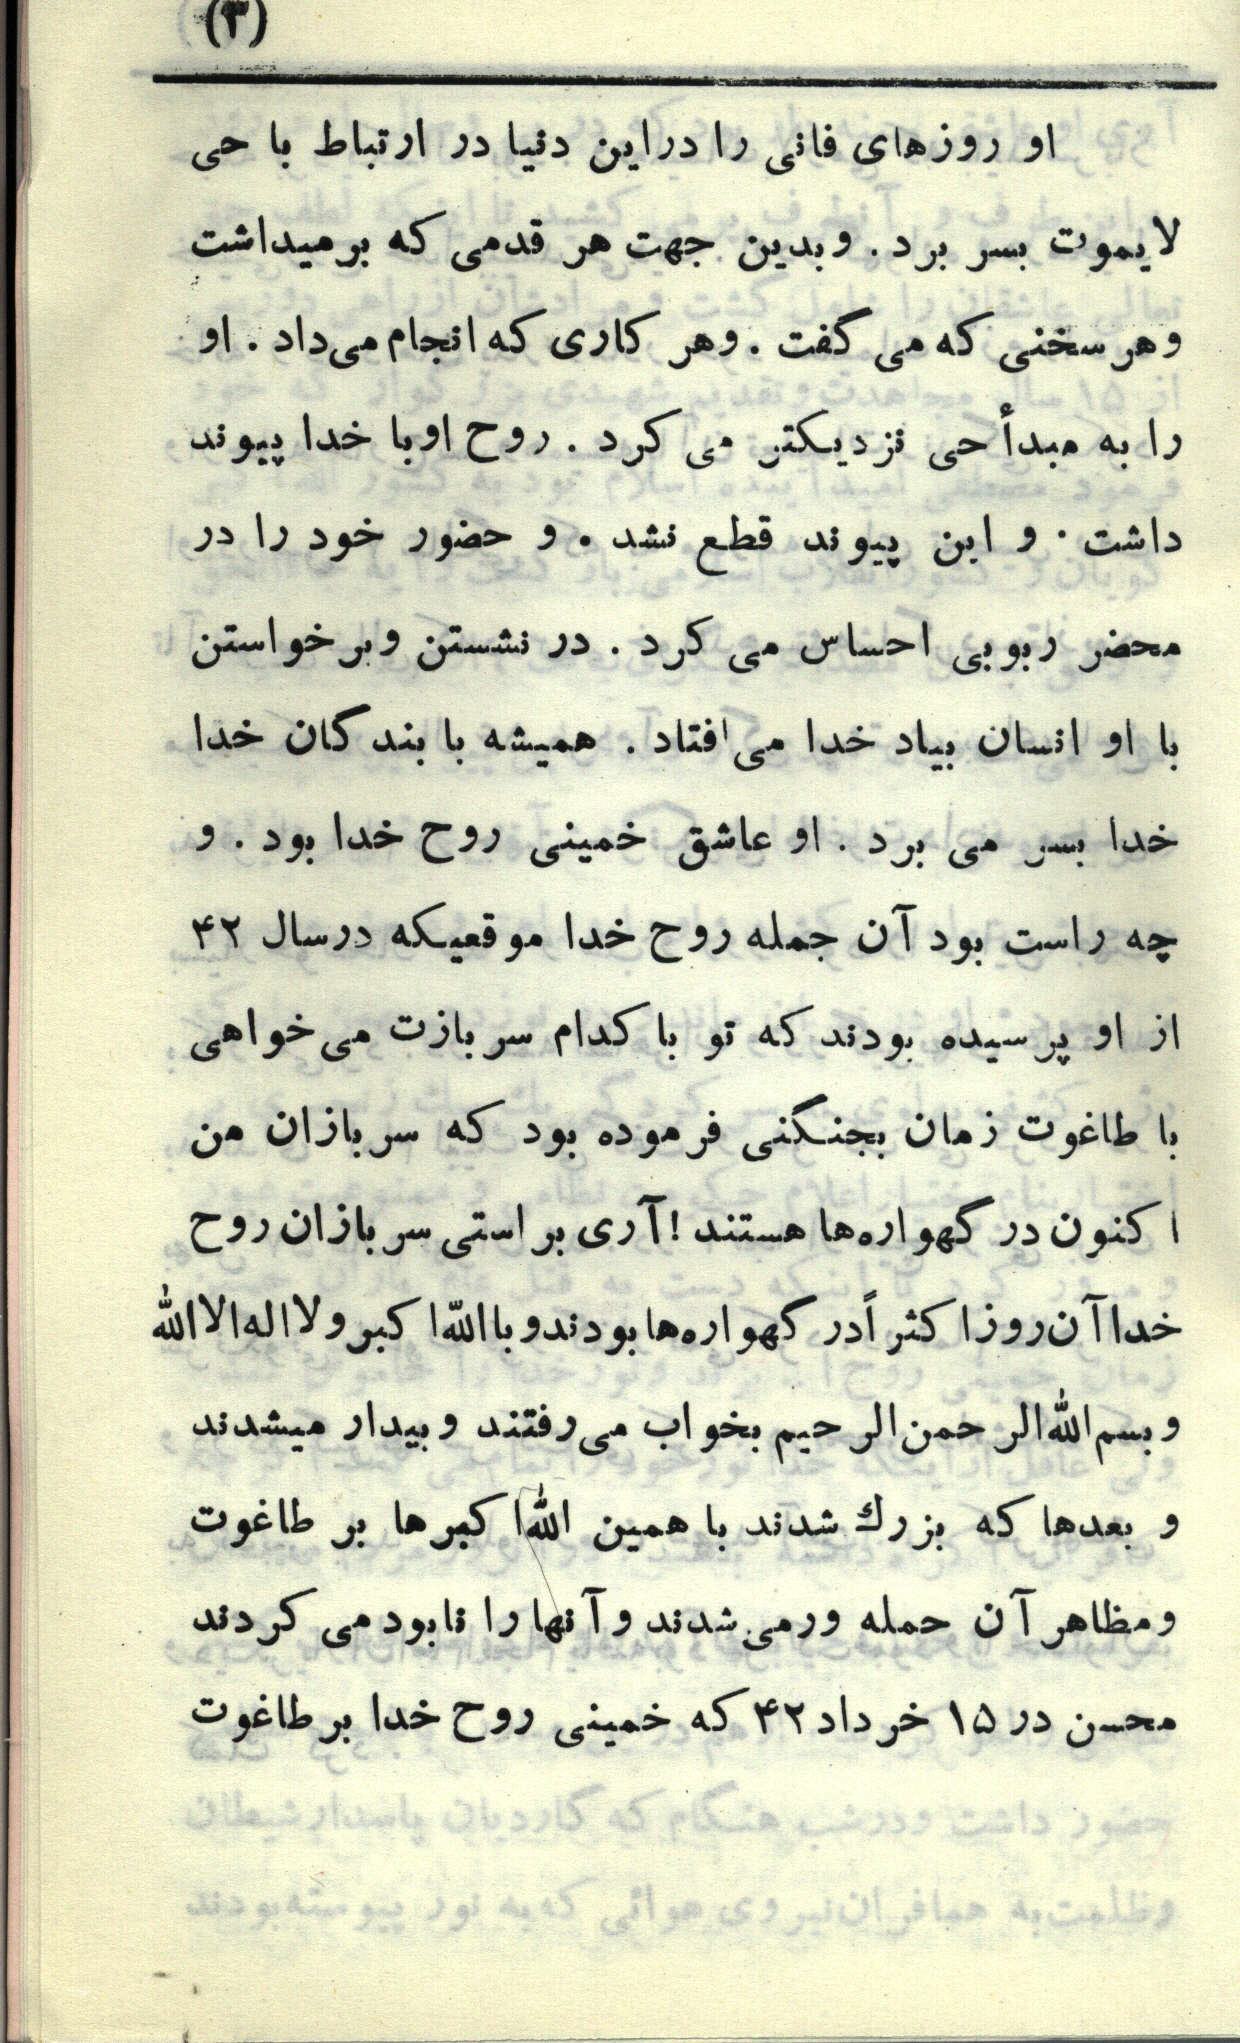 (۳)
او روزهای فانی را دراین دنیا در ارتباط با حی
لایموت بسر برد. وبدین جهت هر قدمی که برمیداشت
وهر سخنی که می گفت . وهر کاری که انجام می‌داد . او
را به مبدأ حی نزدیکتر می کرد . روح اوبا خدا پیوند
داشت . و این پیوند قطع نشد . و حضور خود را در
محضر ربوبی احساس می کرد . در نشستن وبرخواستن
با او انسان بیاد خدا می‌افتاد . همیشه با بندگان خدا
خدا بسر می برد . او عاشق خمینی روح خدا بود . و
چه راست بود آن جمله روح خدا موقعیکه درسال ۴۲
از او پرسیده بودند که تو با کدام سربازت می‌خواهی
با طاغوت زمان بجنگنی فرموده بود که سربازان من
اکنون در گهواره‌ها هستند !آری براستی سربازان روح
خداآن‌روزا کثراًدر گهواره‌هابودندوباالله‌اکبرولااله‌الاالله
وبسم‌الله‌الرحمن‌الرحیم بخواب می‌رفتند وبیدار میشدند
و بعدها که بزرك شدند با همین الله‌اکبرها بر طاغوت
ومظاهر آن حمله ورمی‌شدند وآنهارا نابودمی کردند
محسن در ۱۵ خرداد ۴۲ که خمینی روح خدا برطاغوت